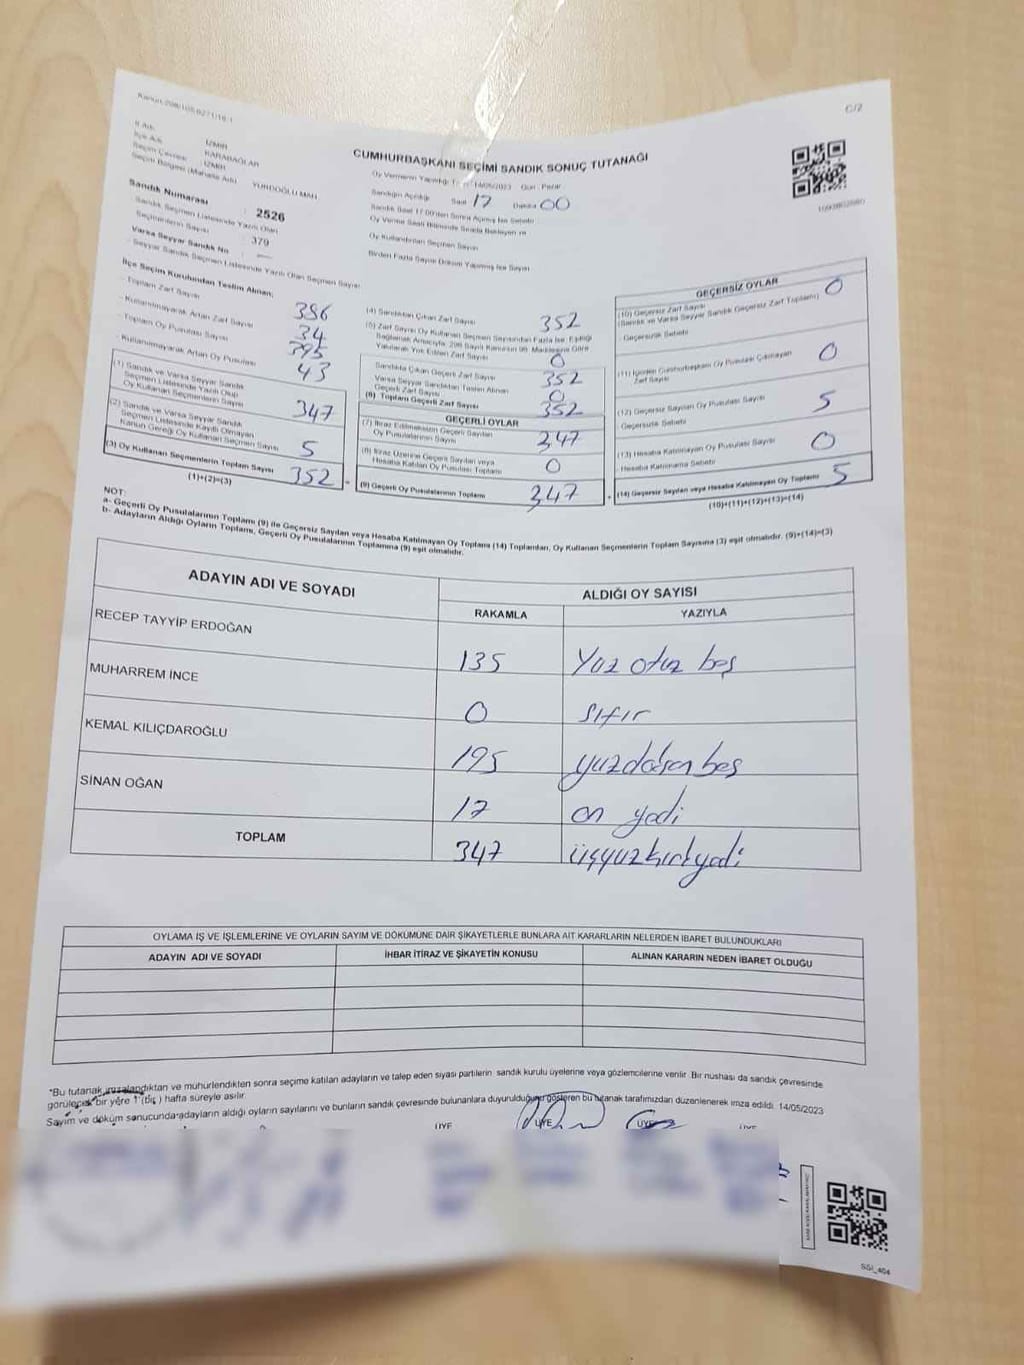 C/2
Kanun 298/105,6271/18-1
İl Adı İZMİR
İlçe Adı KARABAĞLAR
Seçim Çevresi : İZMİR
Seçim Bölgesi (Mahalle Adı) YURDOĞLU MAH
CUMHURBAŞKANI SEÇİMİ SANDIK SONUÇ TUTANAĞI
Oy Vermenin Yapıldığı 14/05/2023 Gün : Pazar
Sandığın Açıldığı Saat 17 Dakika 00
Sandık Numarası : 2526
Sandık Seçmen Listesinde Yazılı Olan
Seçmenlerin Sayısı : 379
Varsa Seyyar Sandık No : —
- Seyyar Sandık Seçmen Listesinde Yazılı Olan Seçmen Sayısı
Sandık Saat 17:00'den Sonra Açılmış İse Sebebi
Oy Verme Saati Bitiminde Sırada Bekleyen ve
Oy Kullandırılan Seçmen Sayısı
Birden Fazla Sayım Döküm Yapılmış İse Sayısı
İlçe Seçim Kurulundan Teslim Alınan;
- Toplam Zarf Sayısı 386
- Kullanılmayarak Artan Zarf Sayısı 34
- Toplam Oy Pusulası Sayısı 395
- Kullanılmayarak Artan Oy Pusulası 43
(1) Sandık ve Varsa Seyyar Sandık
Seçmen Listesinde Yazılı Olup
Oy Kullanan Seçmenlerin Sayısı 347
(2) Sandık ve Varsa Seyyar Sandık
Seçmen Listesinde Kayıtlı Olmayan
Kanun Gereği Oy Kullanan Seçmen Sayısı 5
(3) Oy Kullanan Seçmenlerin Toplam Sayısı 352
(1)+(2)=(3)
(4) Sandıktan Çıkan Zarf Sayısı 352
(5) Zarf Sayısı Oy Kullanan Seçmen Sayısından Fazla İse, Eşitliği
Sağlamak Amacıyla, 298 Sayılı Kanunun 98. Maddesine Göre
Yakılarak Yok Edilen Zarf Sayısı 0
Sandıkta Çıkan Geçerli Zarf Sayısı 352
Varsa Seyyar Sandıktan Teslim Alınan
Geçerli Zarf Sayısı 0
(6) Toplam Geçerli Zarf Sayısı 352
GEÇERLİ OYLAR
(7) İtiraz Edilmeksizin Geçerli Sayılan
Oy Pusulalarının Sayısı 347
(8) İtiraz Üzerine Geçerli Sayılan veya
Hesaba Katılan Oy Pusulası Toplamı 0
(9) Geçerli Oy Pusulalarının Toplamı 347
GEÇERSİZ OYLAR
(10) Geçersiz Zarf Sayısı 0
(Sandık ve Varsa Seyyar Sandık Geçersiz Zarf Toplamı)
- Geçersizlik Sebebi
(11) İçinden Cumhurbaşkanı Oy Pusulası Çıkmayan
Zarf Sayısı 0
(12) Geçersiz Sayılan Oy Pusulası Sayısı 5
- Geçersizlik Sebebi
(13) Hesaba Katılmayan Oy Pusulası Sayısı 0
- Hesaba Katılmama Sebebi
(14) Geçersiz Sayılan veya Hesaba Katılmayan Oy Toplamı 5
(10)+(11)+(12)+(13)=(14)
NOT:
a- Geçerli Oy Pusulalarının Toplamı (9) ile Geçersiz Sayılan veya Hesaba Katılmayan Oy Toplamı (14) Toplamları, Oy Kullanan Seçmenlerin Toplam Sayısına (3) eşit olmalıdır. (9)+(14)=(3)
b- Adayların Aldığı Oyların Toplamı, Geçerli Oy Pusulalarının Toplamına (9) eşit olmalıdır.
ADAYIN ADI VE SOYADI ALDIĞI OY SAYISI
RAKAMLA YAZIYLA
RECEP TAYYİP ERDOĞAN 135 Yüz otuz beş
MUHARREM İNCE 0 sıfır
KEMAL KILIÇDAROĞLU 195 yuzdoksan beş
SİNAN OĞAN 17 on yedi
TOPLAM 347 üçyuzkırkyedi
OYLAMA İŞ VE İŞLEMLERİNE VE OYLARIN SAYIM VE DÖKÜMÜNE DAİR ŞİKAYETLERLE BUNLARA AİT KARARLARIN NELERDEN İBARET BULUNDUKLARI
ADAYIN ADI VE SOYADI İHBAR İTİRAZ VE ŞİKAYETİN KONUSU ALINAN KARARIN NEDEN İBARET OLDUĞU
*Bu tutanak imzalandıktan ve mühürlendikten sonra seçime katılan adayların ve talep eden siyasi partilerin sandık kurulu üyelerine veya gözlemcilerine verilir. Bir nüshası da sandık çevresinde
görülecek bir yere 1 (bir) hafta süreyle asılır.
Sayım ve döküm sonucunda adayların aldığı oyların sayılarını ve bunların sandık çevresinde bulunanlara duyurulduğunu gösteren bu tutanak tarafımızdan düzenlenerek imza edildi. 14/05/2023
ÜYE ÜYE ÜYE ÜYE
SSİ_404